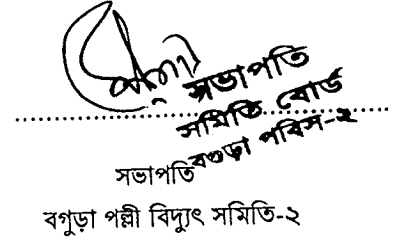 সভাপতি
সমিতি বোর্ড
বগুড়া পবিস-২
সভাপতি
বগুড়া পল্লী বিদ্যুৎ সমিতি-২